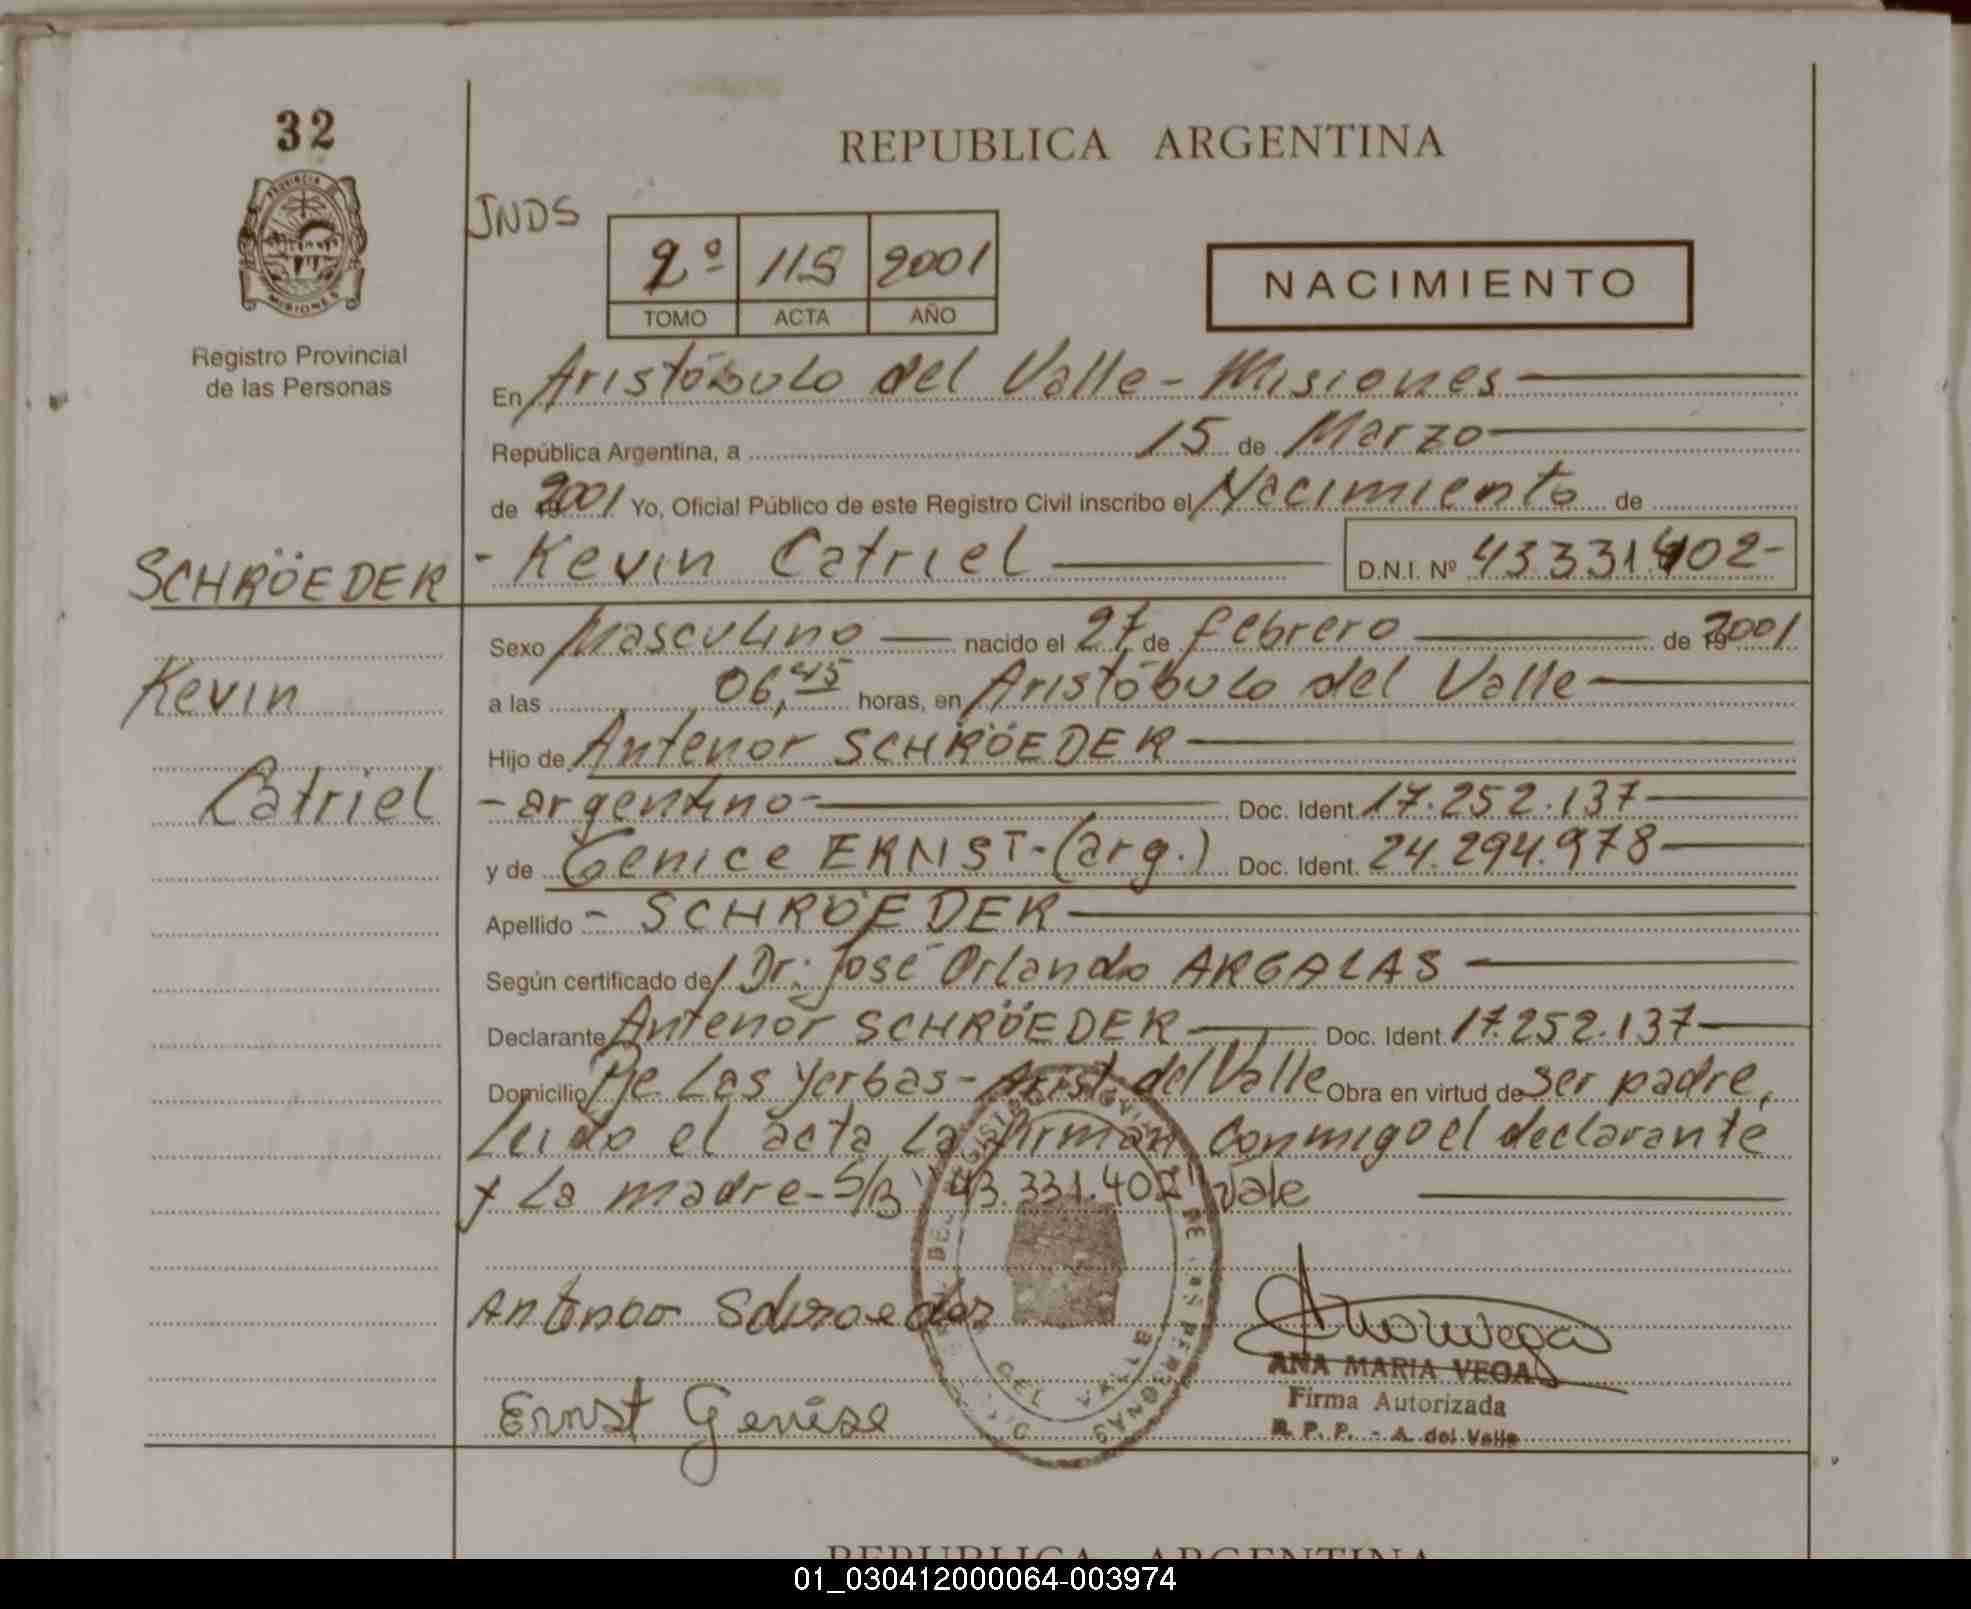 32
REPUBLICA ARGENTINA
PROVINCIA DE
MISIONES
Registro Provincial
de las Personas
JNDS
2º 115 2001
TOMO ACTA AÑO
NACIMIENTO
En Aristóbulo del Valle - Misiones
República Argentina, a 15 de Marzo
de 2001 Yo, Oficial Público de este Registro Civil inscribo el Nacimiento de
SCHRÖEDER - Kevin Catriel D.N.I. Nº 43331402-
Sexo Masculino nacido el 27 de febrero de 2001
Kevin
a las 06,45 horas, en Aristóbulo del Valle
Hijo de Antenor SCHRÖEDER
Catriel
- argentino - Doc. Ident. 17.252.137
y de Genice ERNST - (arg.) Doc. Ident. 24.294.978
Apellido - SCHRÖEDER
Según certificado de Dr. José Orlando ARGALAS
Declarante Antenor SCHRÖEDER Doc. Ident. 17.252.137
Domicilio Pje. Las Yerbas - Arist. del Valle Obra en virtud de ser padre,
Leido el acta la firman conmigo el declarante
y La madre - S/B "43.331.402" Vale
Antenor Schroeder
ANA MARIA VEGA
Firma Autorizada
R. P. P. - A. del Valle
Ernst Genise
REPUBLICA ARGENTINA
01_030412000064-003974